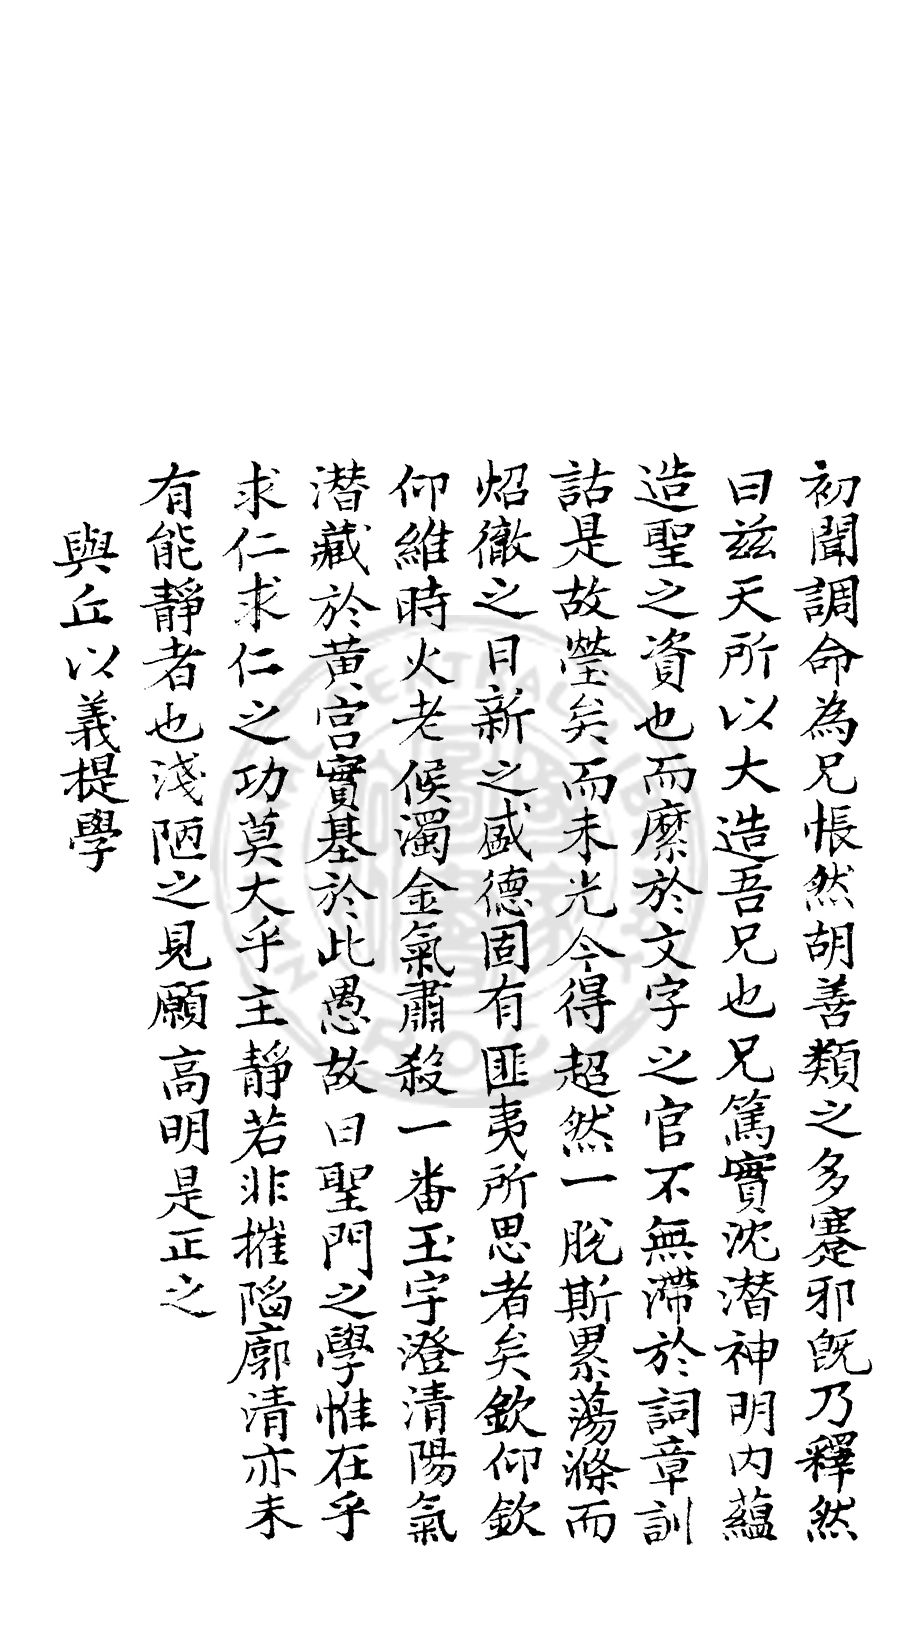 初聞調命為兄悵然胡善類之多蹇邪旣乃釋然
曰兹天所以大造吾兄也兄篤實沈潛神明内蘊
造聖之資也而縻於文字之官不無滯於詞章訓
詁是故瑩矣而未光今得超然一脫斯累蕩滌而
炤徹之日新之盛德固有匪夷所思者矣欽仰欽
仰維時火老候濁金氣肅殺一番玉宇澄清陽氣
潛藏於黃宫實基於此愚故曰聖門之學惟在乎
求仁求仁之功莫大乎主靜若非摧陷廓清亦未
有能靜者也淺陋之見願高明是正之
與丘以義提學